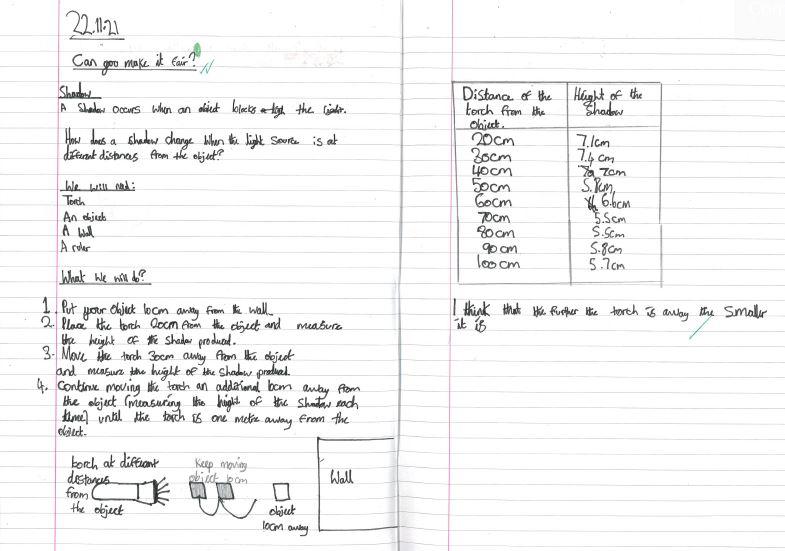 22.11.21
Can you make it fair?
Shadow
A Shadow occurs when an object blocks the light.
How does a shadow change when the light source is at
different distances from the object?
We will need:
Torch
An object
A Wall
A ruler
What we will do?
1. Put your object 10cm away from the wall.
2. Place the torch 20cm from the object and measure
the height of the shadow produced.
3. Move the torch 30cm away from the object
and measure the height of the shadow produced.
4. Continue moving the torch an additional 10cm away from
the object (measuring the height of the shadow each
time) until the torch is one metre away from the
object.
torch at different
distances
from
the object
Keep moving
object 10cm
object
10cm away
Wall
Distance of the torch from the object. Height of the Shadow
20cm 7.1cm
30cm 7.4cm
40cm 7cm
50cm 5.8cm
60cm 6.6cm
70cm 5.5cm
80cm 5.5cm
90cm 5.8cm
100cm 5.7cm
I think that the further the torch is away the smaller
it is